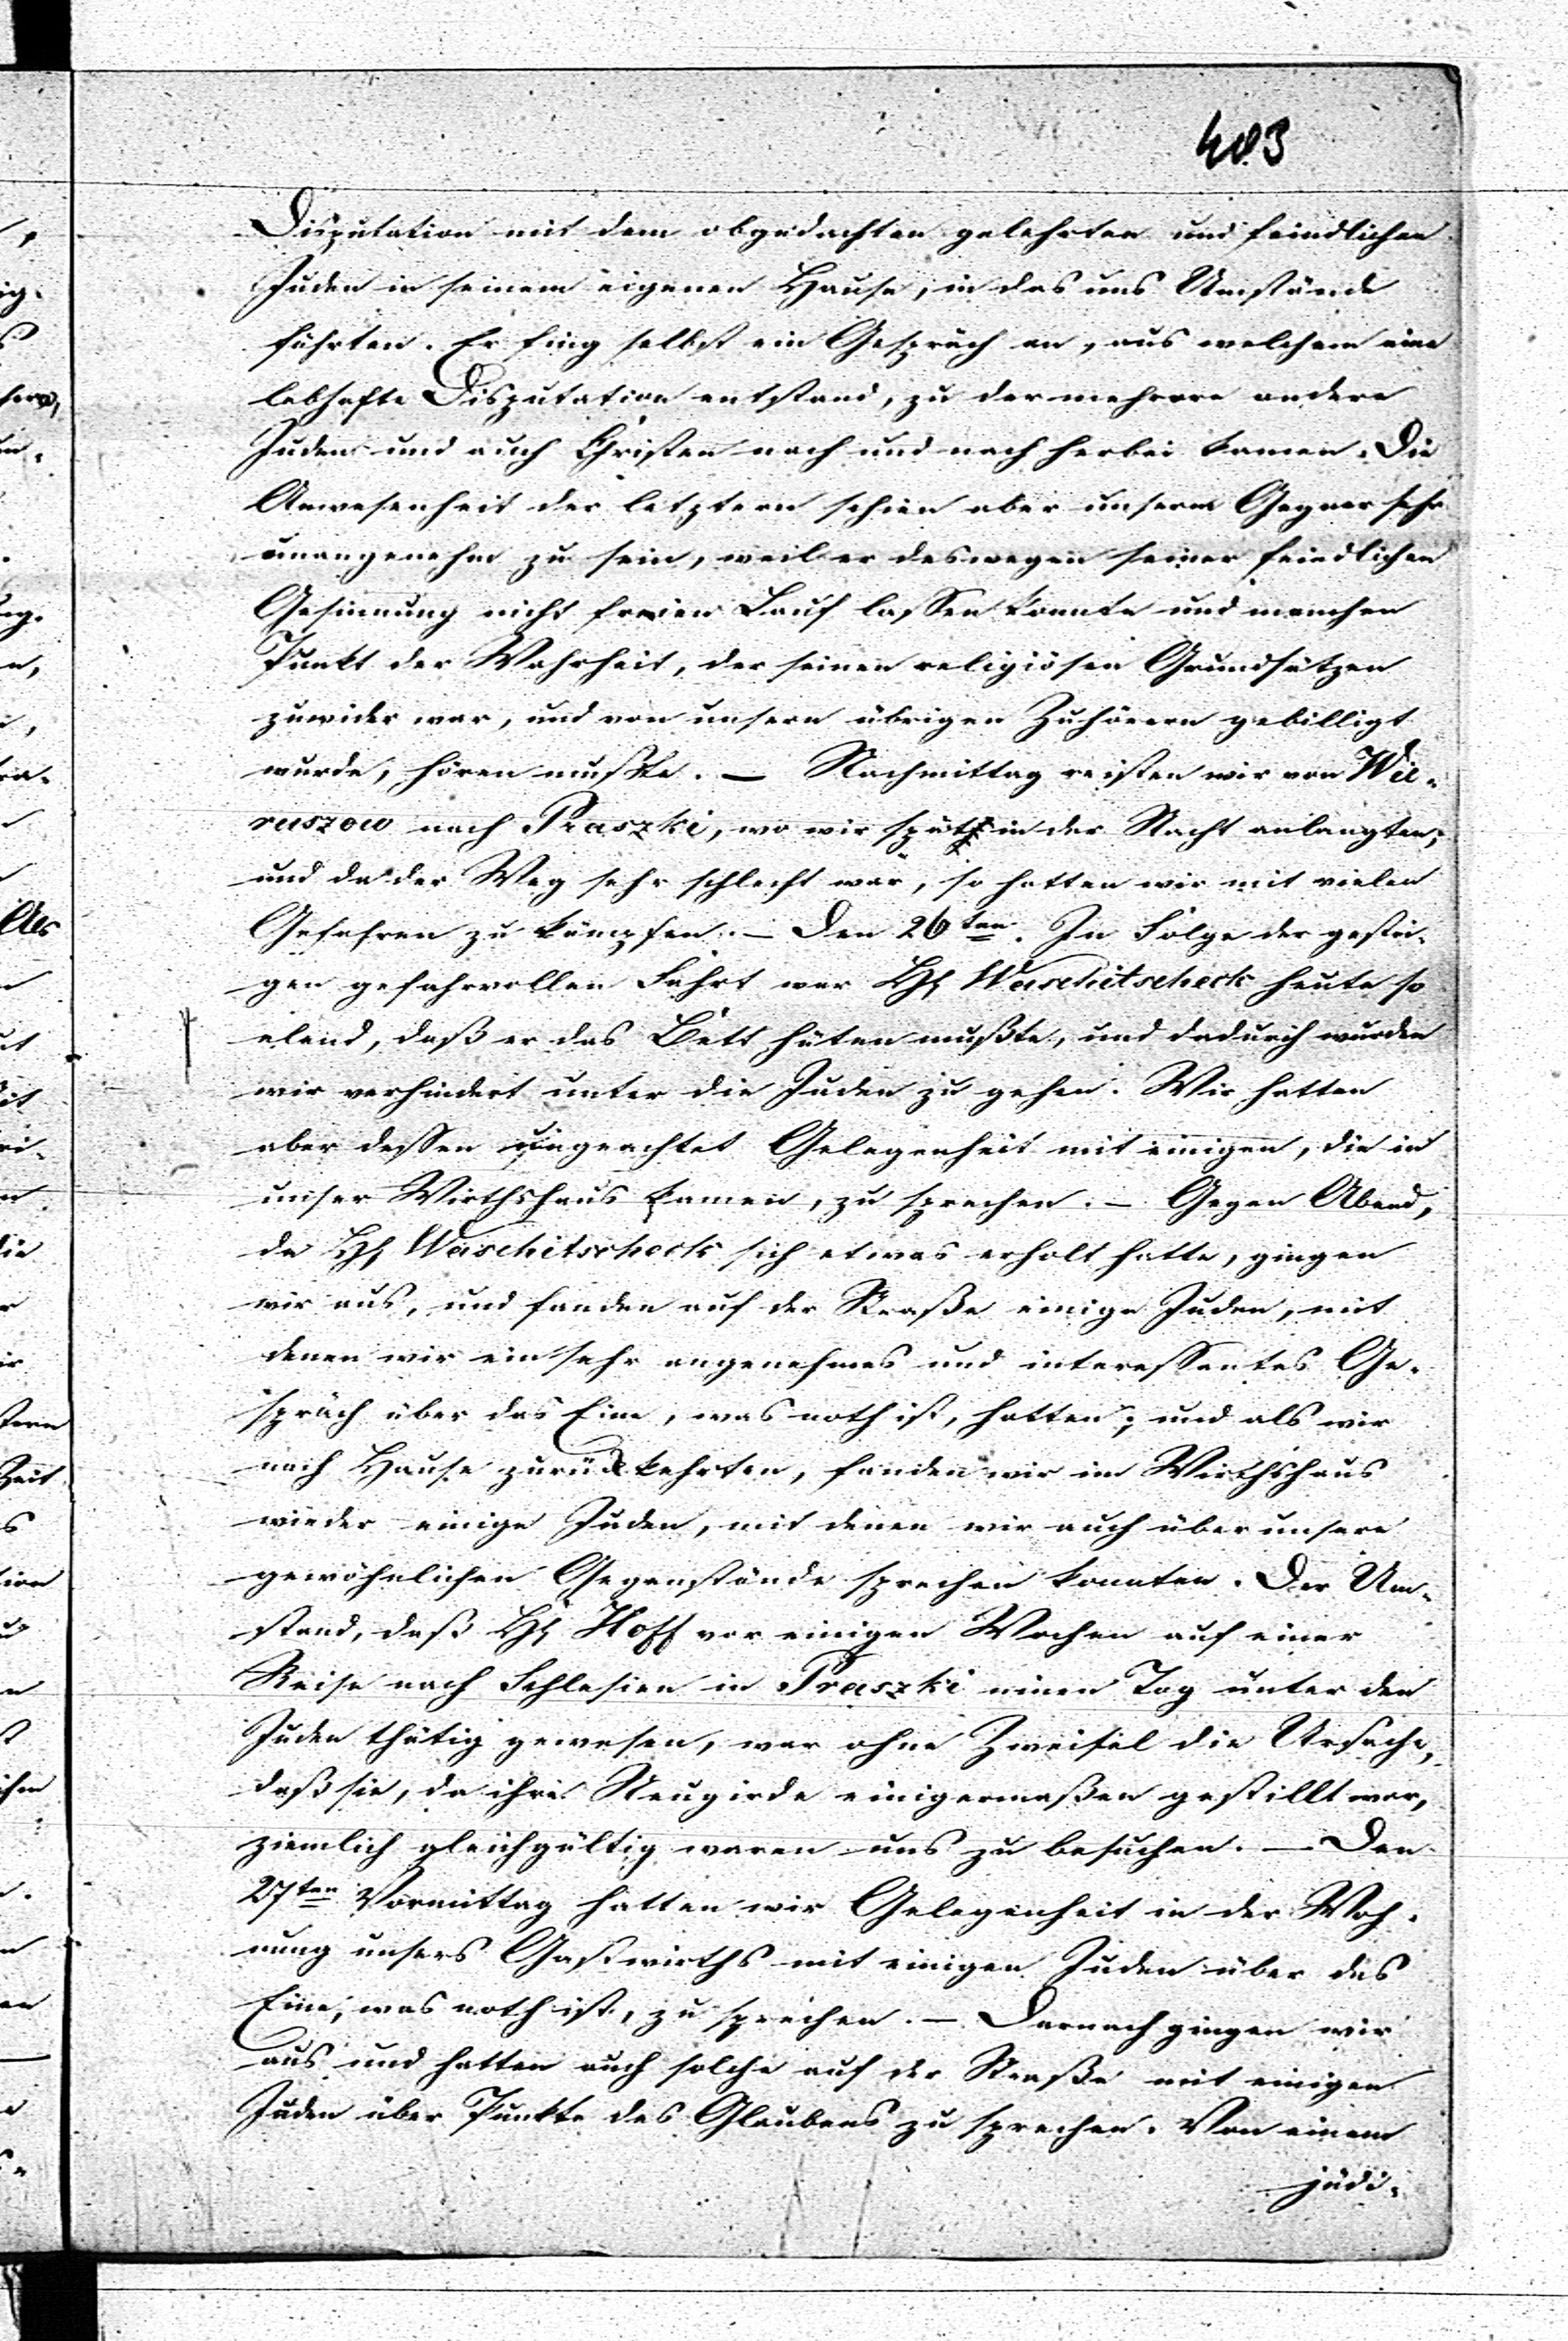 403
Disputation mit dem obgedachten gelehrten und feindlichen
Juden in seinem eigenen Hause, in das uns Umstände
führten. Er fing selbst ein Gespräch an, aus welchem eine
lebhafte Disputation entstand, zu der mehrere andere
Juden und auch Christen nach und nach herbei kamen. Die
Anwesenheit der letztern schien aber unserm Gegner sehr
unangenehm zu sein, weil er deswegen seiner feindlichen
Gesinnung nicht freien Lauf lassen konnte und manchen
Punkt der Wahrheit, der seinen religiösen Grundsätzen
zuwider war, und von unsern übrigen Zuhörern gebilligt
wurde, hören mußte. — Nachmittag reisten wir von Wie-
ruszow nach Praszki, wo wir spät in der Nacht anlangten,
und da der Weg sehr schlecht war, so hatten wir mit vielen
Gefahren zu kämpfen. — Den 26ten. In Folge der gestri-
gen gefahrvollen Fahrt war H Waschitscheck heute so
elend, daß er das Bett hüten mußte, und dadurch wurden
wir verhindert unter die Juden zu gehen. Wir hatten
aber dessen ungeachtet Gelegenheit mit einigen, die in
unser Wirthshaus kamen, zu sprechen. — Gegen Abend,
da H Waschitscheck sich etwas erholt hatte, gingen
wir aus, und fanden auf der Straße einige Juden, mit
denen wir ein sehr angenehmes und interessantes Ge-
spräch über das Eine, was noth ist, hatten; und als wir
nach Hause zurückkehrten, fanden wir im Wirthshaus
wieder einige Juden, mit denen wir auch über unsere
gewöhnlichen Gegenstände sprechen konnten. Der Um-
stand, daß H Hoff vor einigen Wochen auf einer
Reise nach Schlesien in Praszki einen Tag unter den
Juden thätig gewesen, war ohne Zweifel die Ursache,
daß sie, da ihre Neugirde einigermaßen gestillt war,
ziemlich gleichgültig waren uns zu besuchen. — Den
27ten Vormittag hatten wir Gelegenheit in der Woh-
nung unsers Gastwirths mit einigen Juden über das
Eine, was noth ist, zu sprechen. — Darnach gingen wir
aus und hatten auch solche auf der Straße mit einigen
Juden über Punkte des Glaubens zu sprechen. Von einem
jüdi-